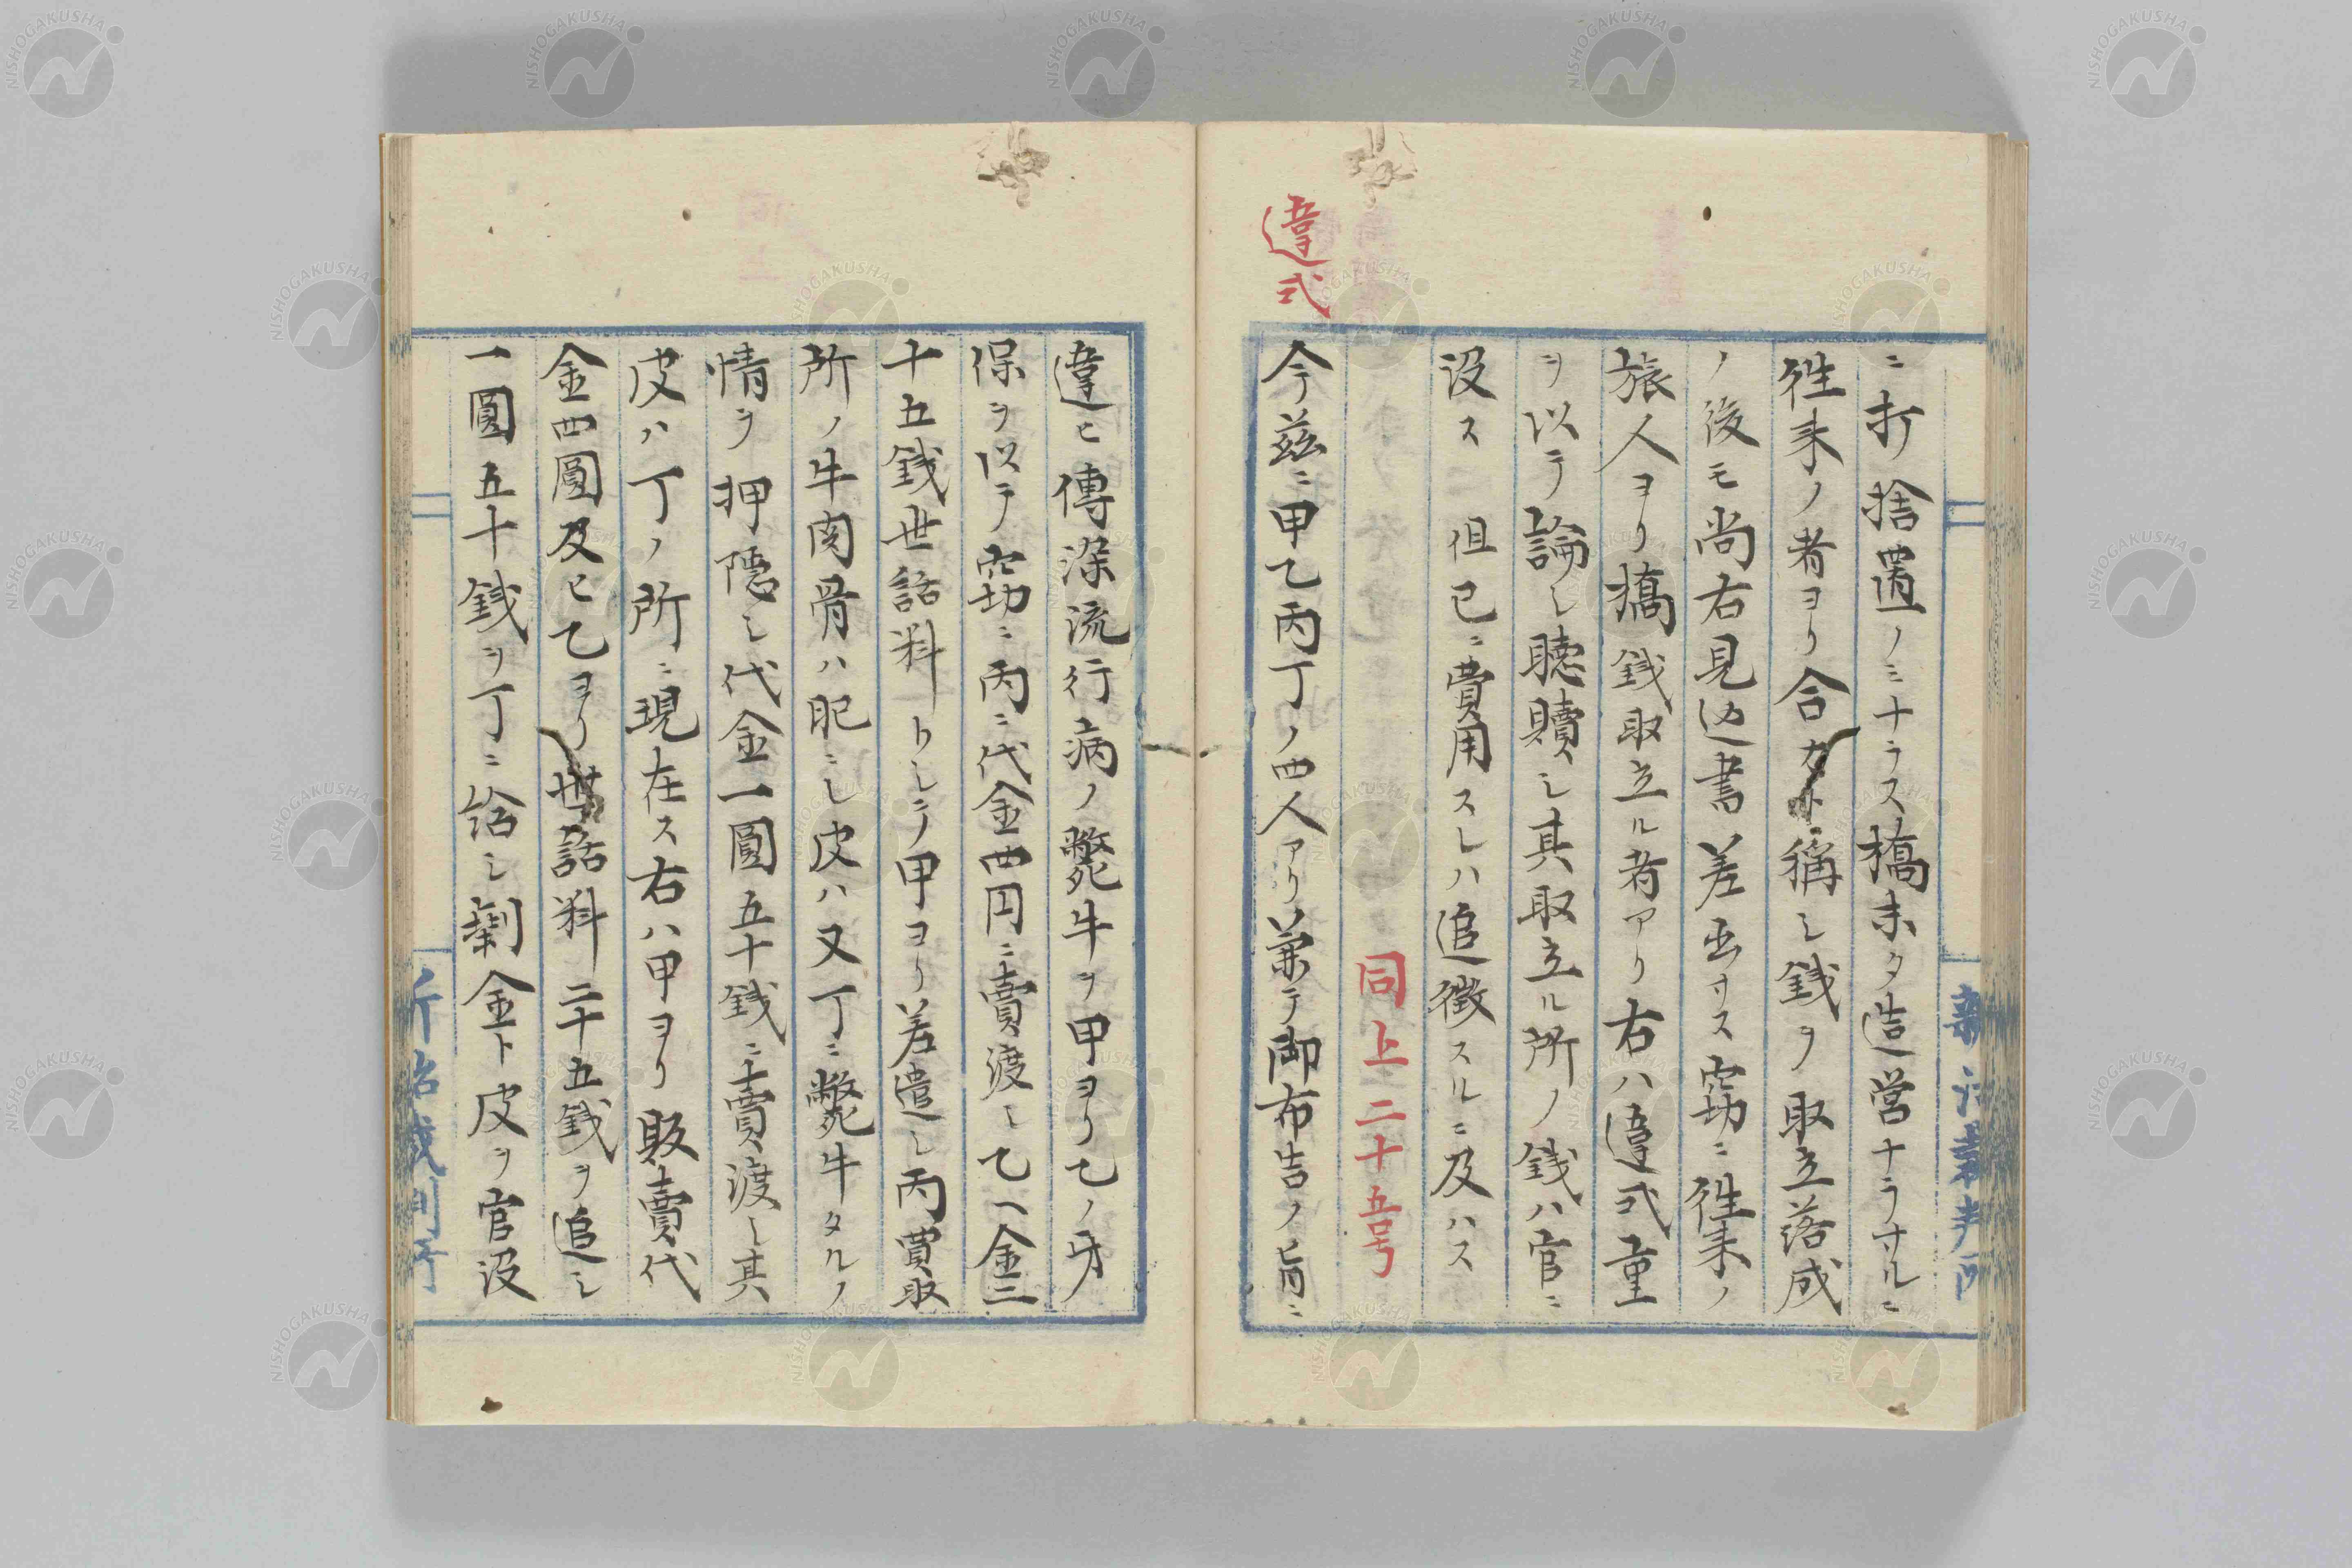 ニ打捨置ノミナラス橋未タ造営ナラサルニ
徃来ノ者ヨリ合力ト稱シ銭ヲ取立落成
ノ後モ尚右見込書差出サス窃ニ徃来ノ
旅人ヨリ橋銭取立ル者アリ右ハ違式重
ヲ以テ論シ聴贖シ其取立ル所ノ銭ハ官ニ
没ス 但已ニ費用スレハ追徴スルニ及ハス
同上二十五号
違式
今茲ニ甲乙丙丁ノ四人アリ兼テ御布告ノ旨ニ
違ヒ傳染流行病ノ斃牛ヲ甲ヨリ乙ノ牙
保ヲ以テ窃ニ丙ニ代金四円ニ賣渡シ乙ヘ金二
十五銭世話料トシテ甲ヨリ差遣シ丙買取
所ノ牛肉骨ハ肥ニシ皮ハ又丁ニ斃牛タルノ
情ヲ押隠シ代金一圓五十銭ニ賣渡シ其
皮ハ丁ノ所ニ現在ス右ハ甲ヨリ販賣代
金四圓及ヒ乙ヨリ世話料二十五銭ヲ追シ
一圓五十銭ヲ丁ニ給シ剰金ト皮ヲ官没
新治裁判所
新治裁判所
NISHOGAKUSHA